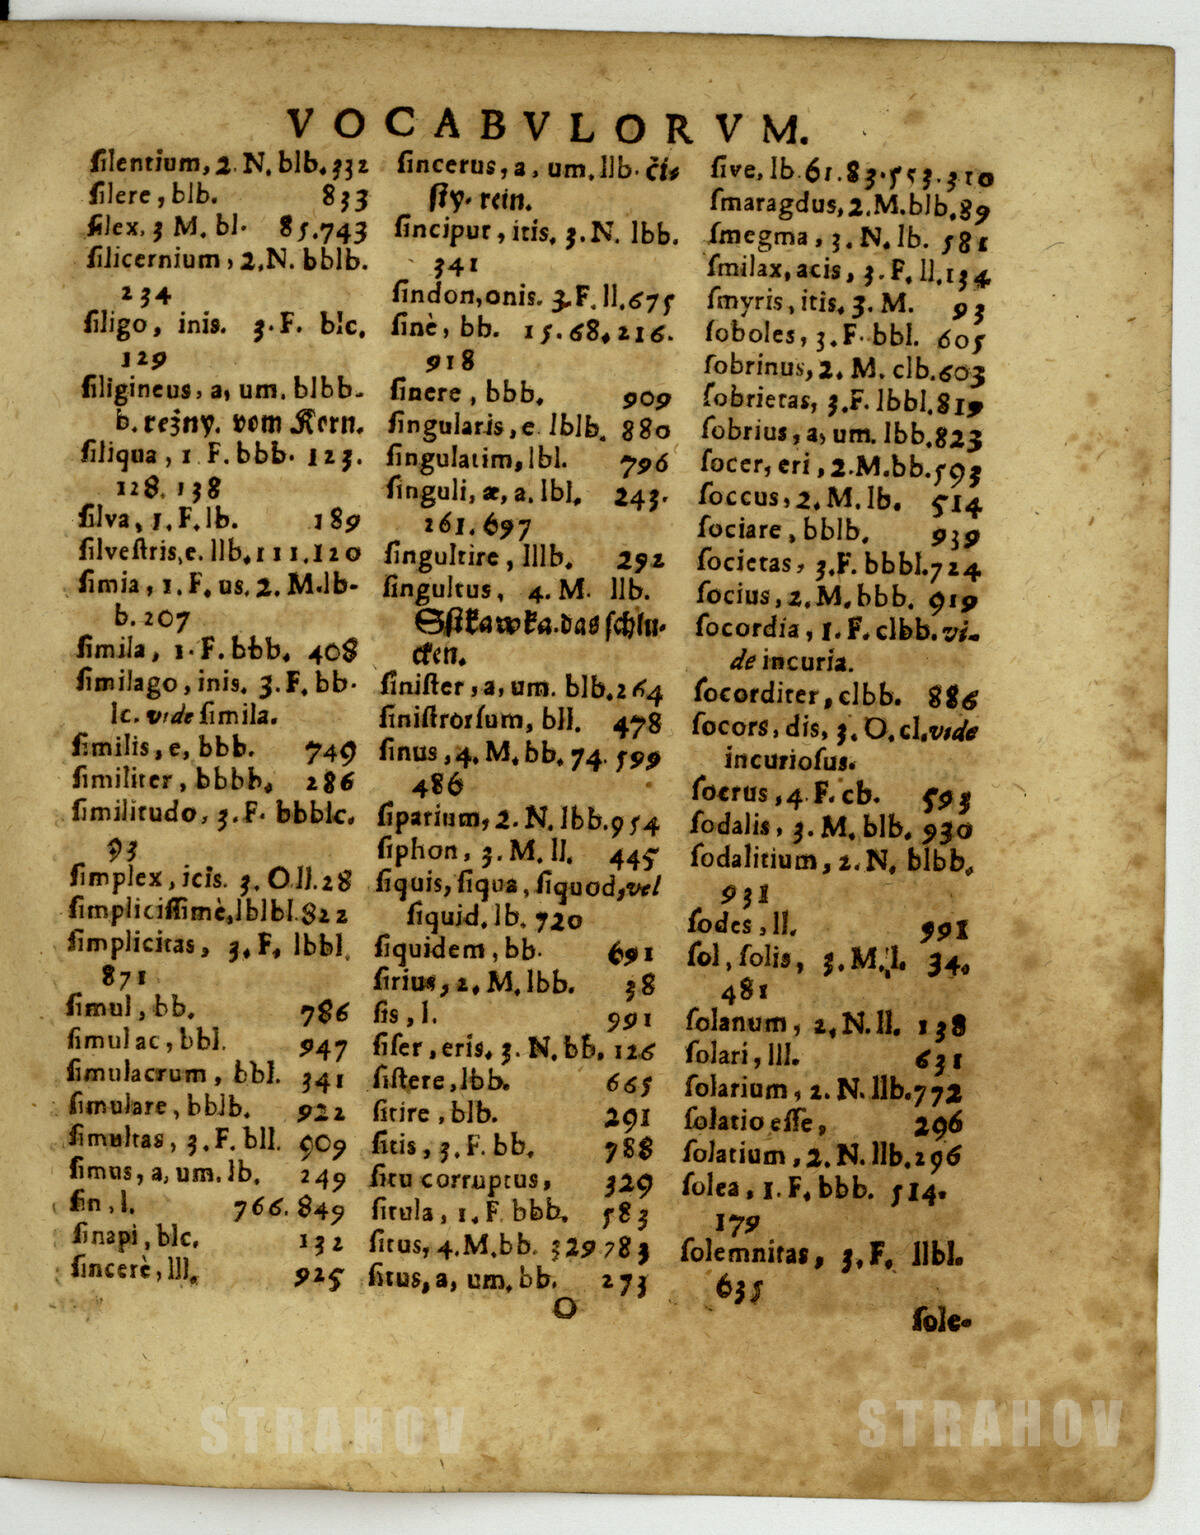 VOCABVLORVM.
ſilentium, 2. N. blb. 332
ſilere, blb. 833
ſilex, 3 M. bl. 85.743
ſilicernium, 2. N. bblb.
234
ſiligo, inis. 3. F. blc.
129
ſiligineus, a, um. blbb-
b. režny. vom Kern.
ſiliqua, 1 F. bbb. 123.
128. 138
ſilva, 1. F. lb. 189
ſilveſtris, e. llb. 111.120
ſimia, 1. F. us. 2. M. lb-
b. 207
ſimila, 1. F. bbb. 408
ſimilago, inis. 3. F. bb-
lc. vide ſimila.
ſimilis, e, bbb. 749
ſimiliter, bbbb. 286
ſimilitudo, 3. F. bbblc.
93
ſimplex, icis. 3. O. ll. 28
ſimpliciſſimè, lblbl. 822
ſimplicitas, 3. F. lbbl.
871
ſimul, bb. 786
ſimul ac, bbl. 947
ſimulacrum, bbl. 341
ſimulare, bblb. 922
ſimultas, 3. F. bll. 909
ſimus, a, um. lb. 249
ſin, l. 766. 849
ſinapi, blc. 132
ſincerè, lll. 925
ſincerus, a, um. llb. čiſ
ſty. rein.
ſinciput, itis. 3. N. lbb.
341
ſindon, onis. 3. F. ll. 675
ſinè, bb. 15. 68. 216.
918
ſinere, bbb. 909
ſingularis, e. lblb. 880
ſingulatim, lbl. 796
ſinguli, æ, a. lbl. 243.
261. 697
ſingultire, lllb. 292
ſingultus, 4. M. llb.
Sſtkawka. das ſchlu-
cken.
ſiniſter, a, um. blb. 264
ſiniſtrorſum, bll. 478
ſinus, 4. M. bb. 74. 599
486
ſiparium, 2. N. lbb. 954
ſiphon, 3. M. ll. 445
ſiquis, ſiqua, ſiquod, vel
ſiquid. lb. 720
ſiquidem, bb. 691
ſirius, 2. M. lbb. 38
ſis, l. 991
ſiſer, eris. 3. N. bb. 126
ſiſtere, lbb. 665
ſitire, blb. 291
ſitis, 3. F. bb. 788
ſitu corruptus, 329
ſitula, 1. F. bbb. 583
ſitus, 4. M. bb. 329 783
ſitus, a, um. bb. 273
ſive, lb. 61. 83. 553. 310
ſmaragdus, 2. M. blb. 89
ſmegma, 3. N. lb. 581
ſmilax, acis, 3. F. ll. 134
ſmyris, itis. 3. M. 93
ſoboles, 3. F. bbl. 605
ſobrinus, 2. M. clb. 603
ſobrietas, 3. F. lbbl. 819
ſobrius, a, um. lbb. 823
ſocer, eri, 2. M. bb. 593
ſoccus, 2. M. lb. 514
ſociare, bblb. 939
ſocietas, 3. F. bbbl. 724
ſocius, 2. M. bbb. 919
ſocordia, 1. F. clbb. vi-
de incuria.
ſocorditer, clbb. 886
ſocors, dis, 3. O. cl. vide
incurioſus.
ſocrus, 4 F. cb. 593
ſodalis, 3. M. blb. 930
ſodalitium, 2. N. blbb.
931
ſodes, ll. 991
ſol, ſolis, 3. M. l. 34.
481
ſolanum, 2. N. ll. 138
ſolari, lll. 631
ſolarium, 2. N. llb. 772
ſolatio eſſe, 296
ſolatium, 2. N. llb. 296
ſolea, 1. F. bbb. 514.
179
ſolemnitas, 3. F. llbl.
635
O
ſole-
STRAHOV
STRAHOV